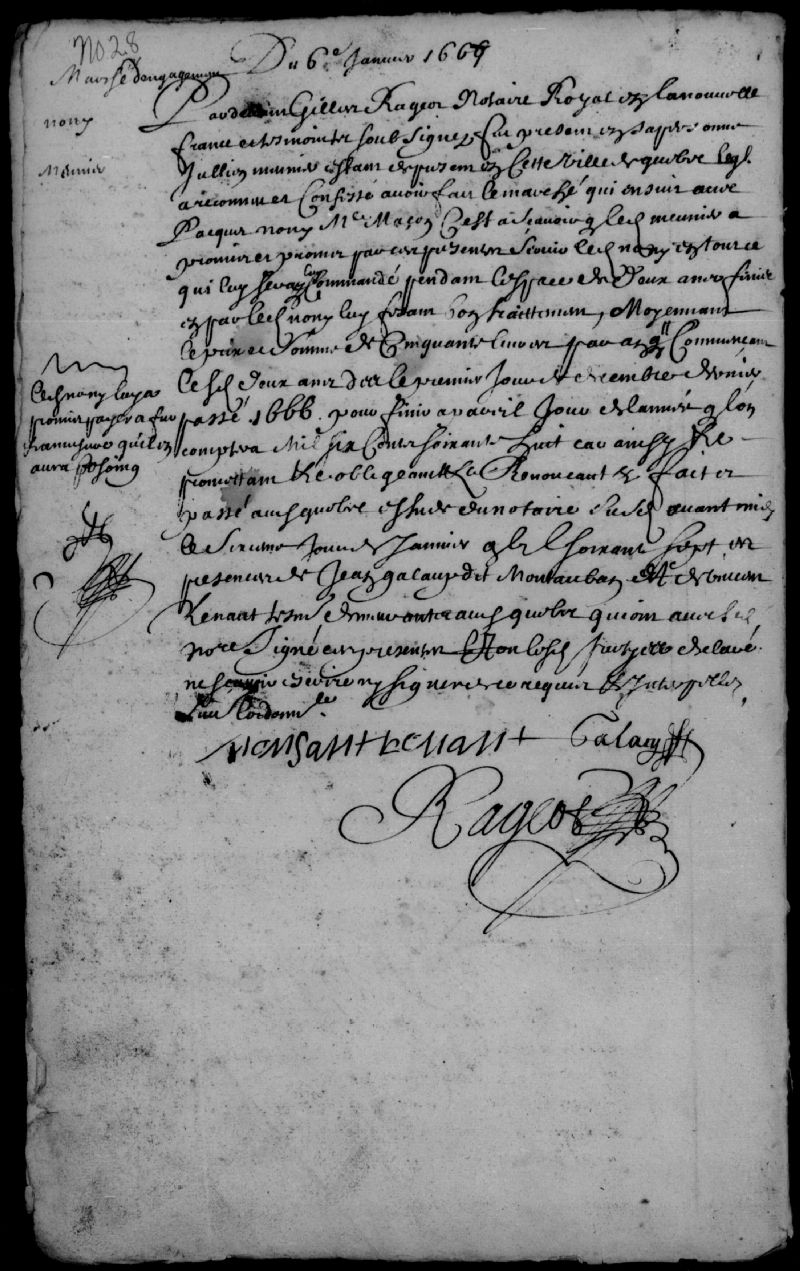 No 28
Du 6e Janvier 1667
Marché d'engagement
nony
Meunier
Pardevant Gilles Rageot Notaire Royal en la nouvelle
france et tesmoins soub signez fut present en sa personne
Jullien meunier estant de present en Cette Ville de quebec leql
a reconnu et Confessé avoir fait le marché qui ensuit avec
Jacques nony Me Maçon C'est a scavoir q led meunier a
promis et promet par ces presentes servir led nony en tout ce
qui luy sera Commandé pendant l'espace de Deux ans finis
en par led nony luy faisant bon traittement, Moyennant
le prix et somme de Cinquante livres par an Commencant
lesd deux ans des le premier Jour de decembre dernier
passé 1666. pour finir a pareil Jour de l'année q lon
comptera Mil six Cents soixante huit car ainsy &c
promettant &c obligeant &c Renoncant &c fait et
passé aud quebec estude du notaire susd avant midy
le Sixieme Jour de Janvier 
 soixante sept en
presence de Jean galaup dit Montauban et de vincent
Renaut tesm demeurantz aud quebec qui ont avec led
nore Signé ces presentes Et ont lesd parties declaré
ne scavoir escrire ny signer de ce requis & Interpellez
suivt lordonnce
led nony luy a
promis payer a fur
et a mesure qu'il en
aura besoing
vensant renant
Galaup
Rageot